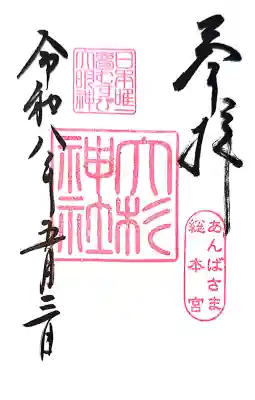 奉拝
日本唯一
夢むすび
大明神
大杉
神社
あんばさま
総本宮
令和八年五月三日